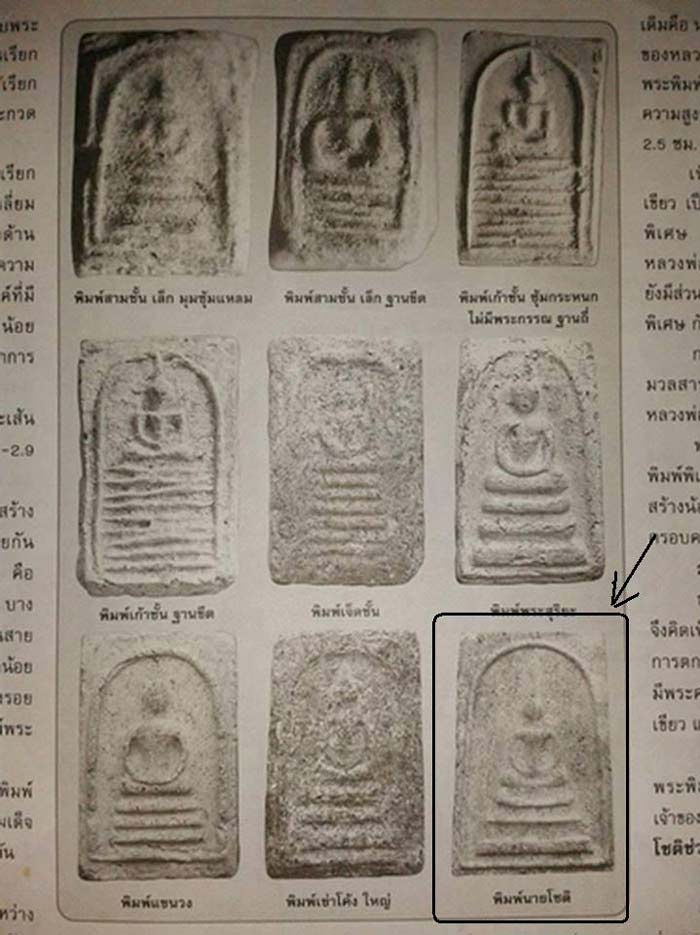 ยพระ
เรียก
เรียก
ะกวด
เรียก
ลี่ยม
ด้าน
ความ
ค์ที่มี
น้อย
าการ
ะเส้น
-2.9
สร้าง
ยกัน
คือ
บาง
นสาย
น้อย
รอย
พระ
พิมพ์
มเด็จ
กัน
หว่าง
พิมพ์สามชั้น เล็ก มุมซุ้มแหลม
พิมพ์สามชั้น เล็ก ฐานขีด
พิมพ์เก้าชั้น ซุ้มกระหนก
ไม่มีพระกรรณ ฐานถี่
พิมพ์เก้าชั้น ฐานขีด
พิมพ์เจ็ดชั้น
พิมพ์พระสุริยะ
พิมพ์แขนวง
พิมพ์เข่าโค้ง ใหญ่
พิมพ์นายโชติ
เดิมคือ
ของหลว
พระพิมพ์
ความสูง
2.5 ซม.
เขียว เป็
พิเศษ
หลวงพ่อ
ยังมีส่วน
พิเศษ กั
มวลสาร
หลวงพ่อ
พิมพ์พิเ
สร้างน้อ
ครอบค
จึงคิดเห็
การตก
มีพระค
เขียว แ
พระพิม
เจ้าของ
โชติช่ว